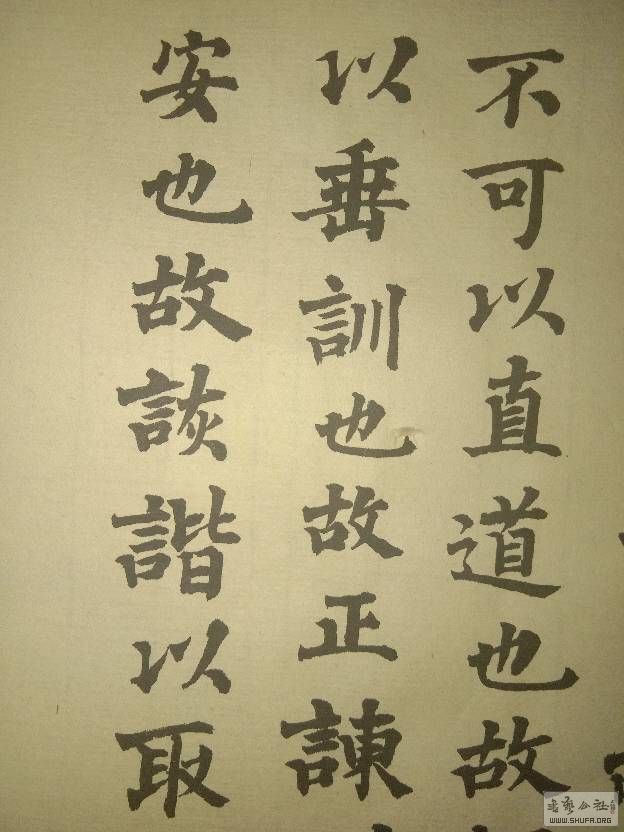 不可以直道也故
以垂訓也故正諫
安也故詼諧以取
WWW.SHUFA.ORG